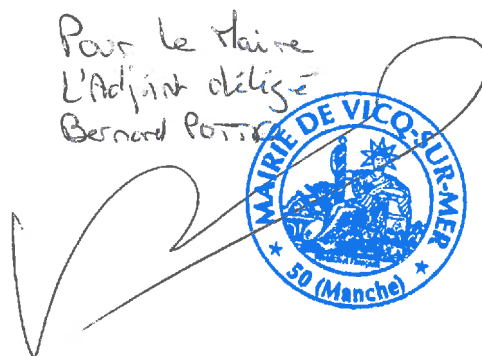 Pour le Maire
L'Adjoint délégé
Bernard
MAIRIE DE VICQ-SUR-MER
50 (Manche)